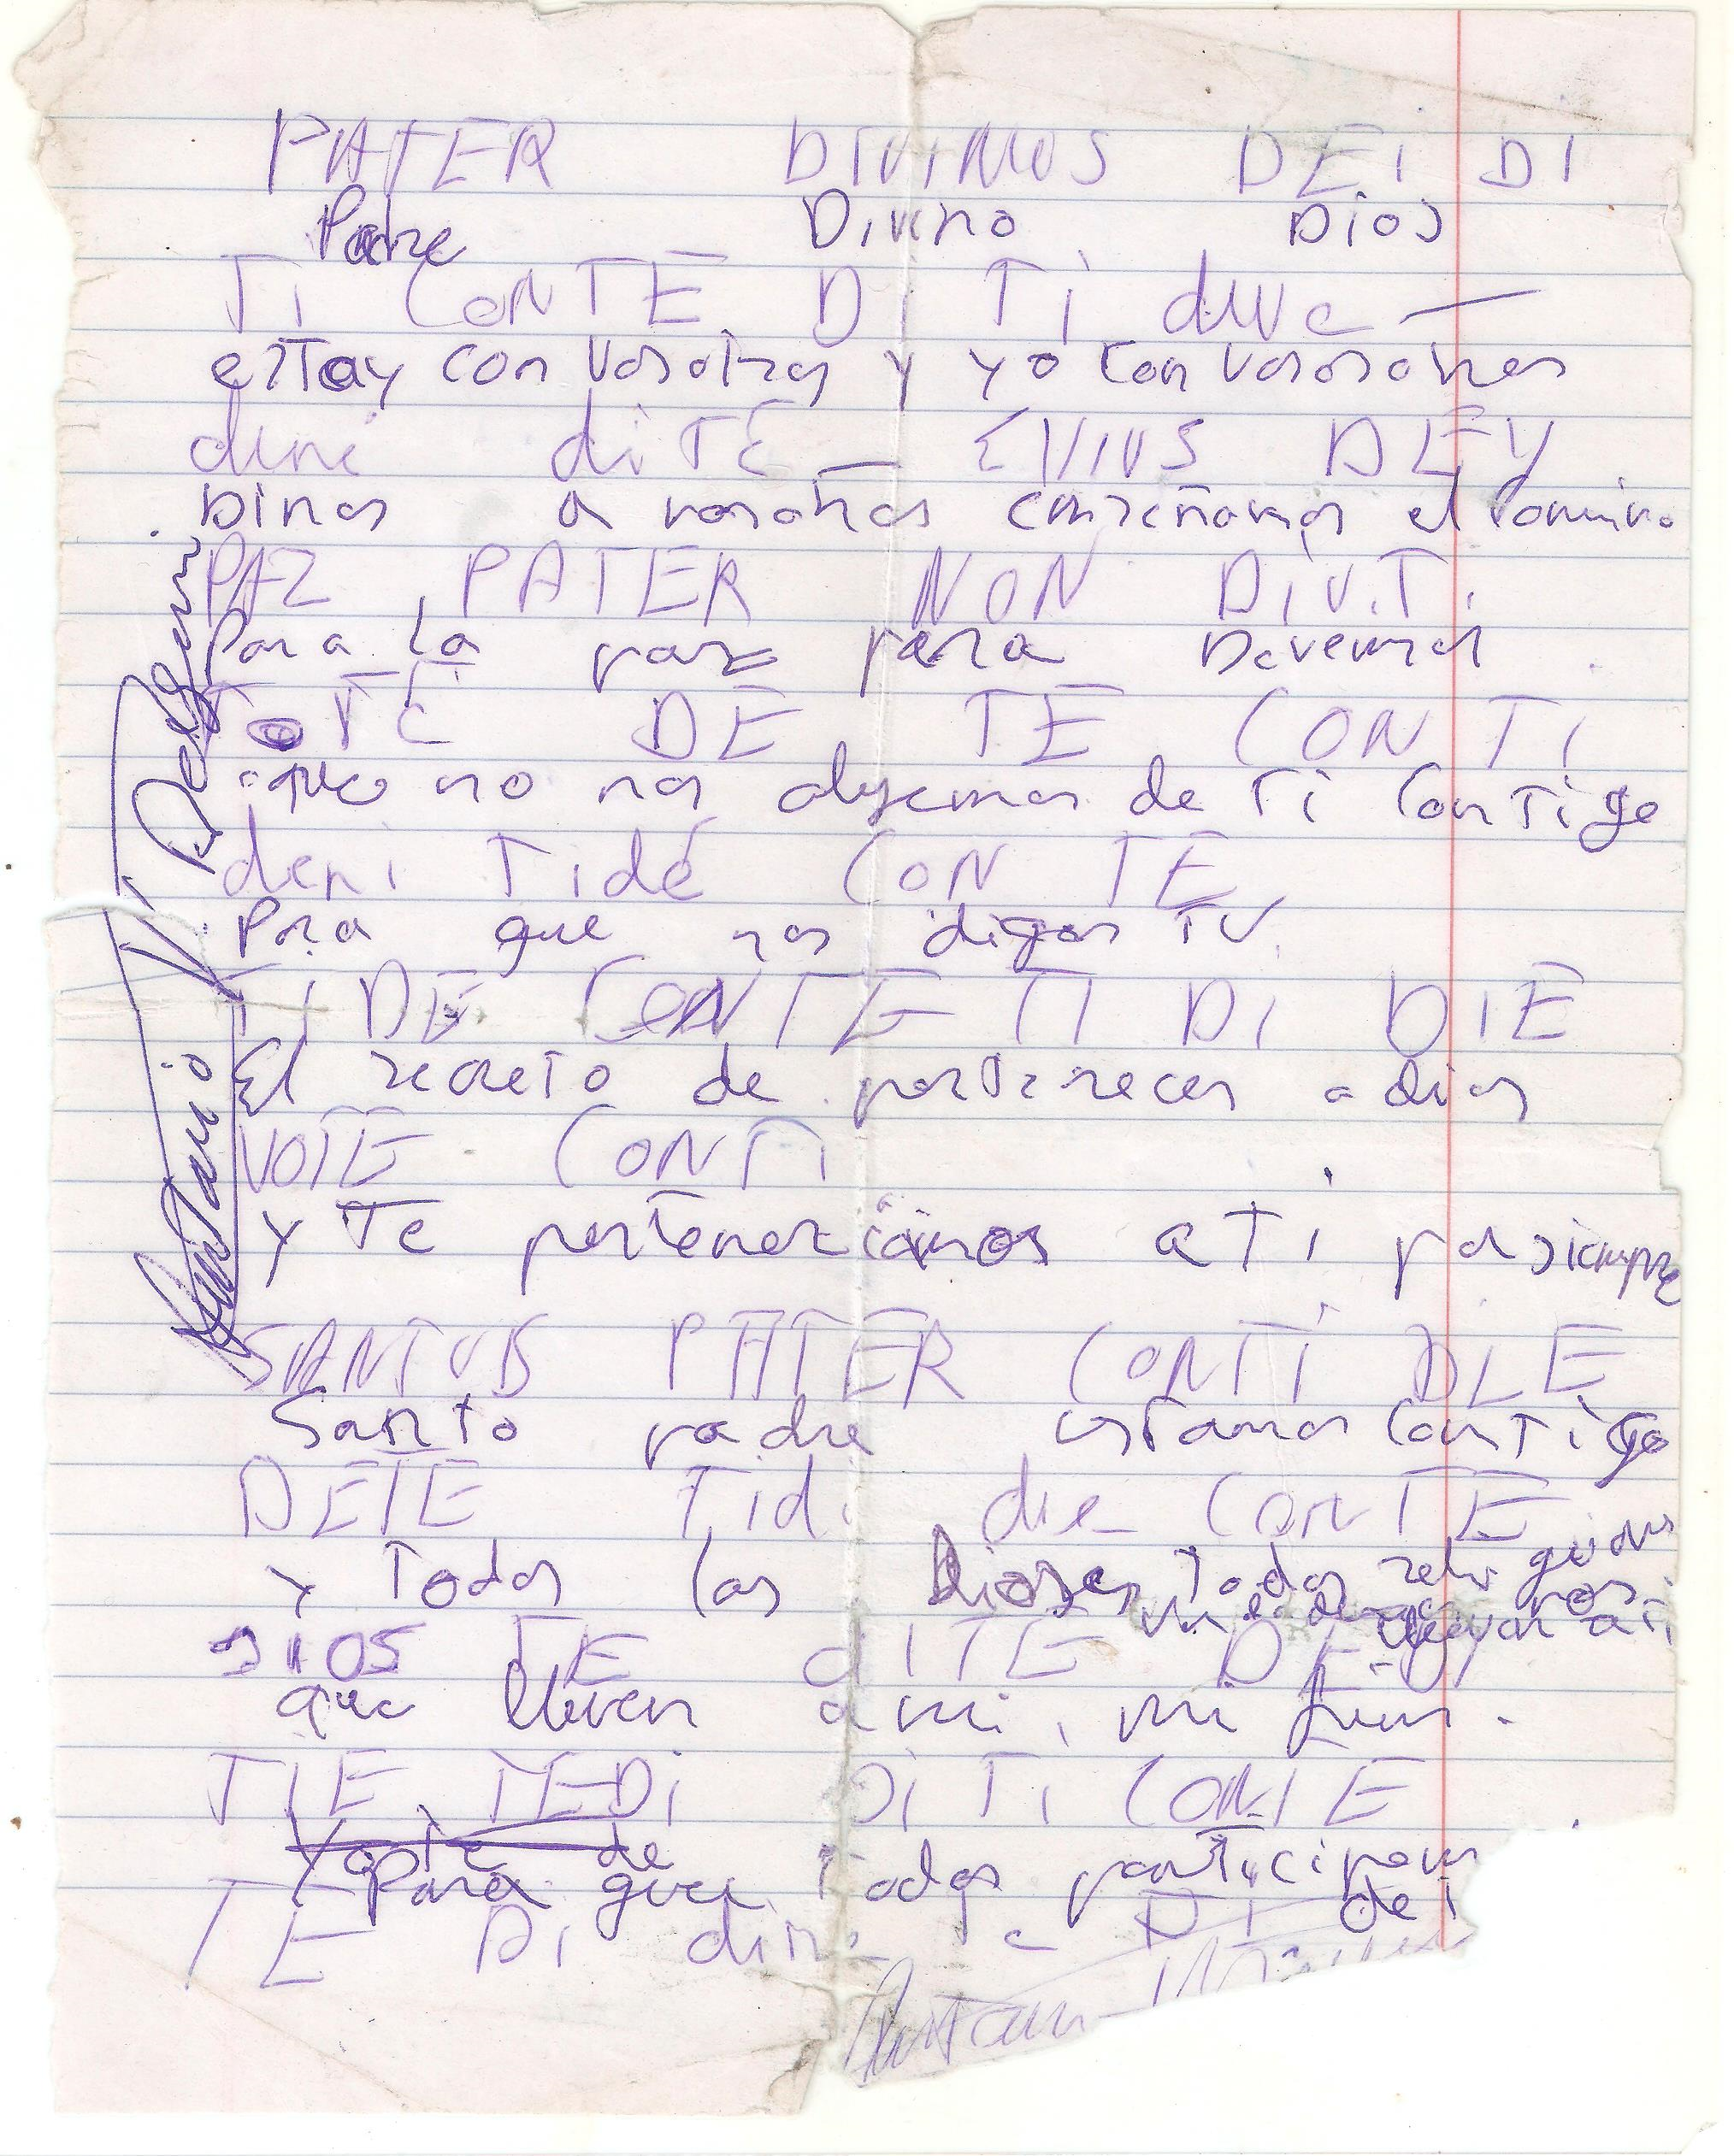 PATER DIVINUS DEI DI
Padre Divino Dios
TI CONTE DI TI duve —
estoy con vosotros y yo con vososotros
dune diTE — EVIUS DEY
Dinos a vosotros enseñamos el camino
PAZ PATER NON DIV.T.
Para la paz para
ToTE DE TE CONTI
que no nos alejemos de Ti Contigo
deni Tide CON TE
Para que nos digas TU.
TI DE CONTE TI DI DIE
El secreto de pertenecer a dios
VOTE CONTI
y Te pertenezcamos a Ti por siempre
SANTUS PATER CONTI DIE
Santo padre estamos Contigo
DETE Tidi die CONTE
y Todos los Dioses Todas religiones
nos a Ti
DIOS TE diTE DEDY
que lleven a mi, mi fin.
TIE TEDI DiTi CONTE
Yo Te de
para que Todos participen
TE Di DI del
Antonio
Antonio J. Delgum